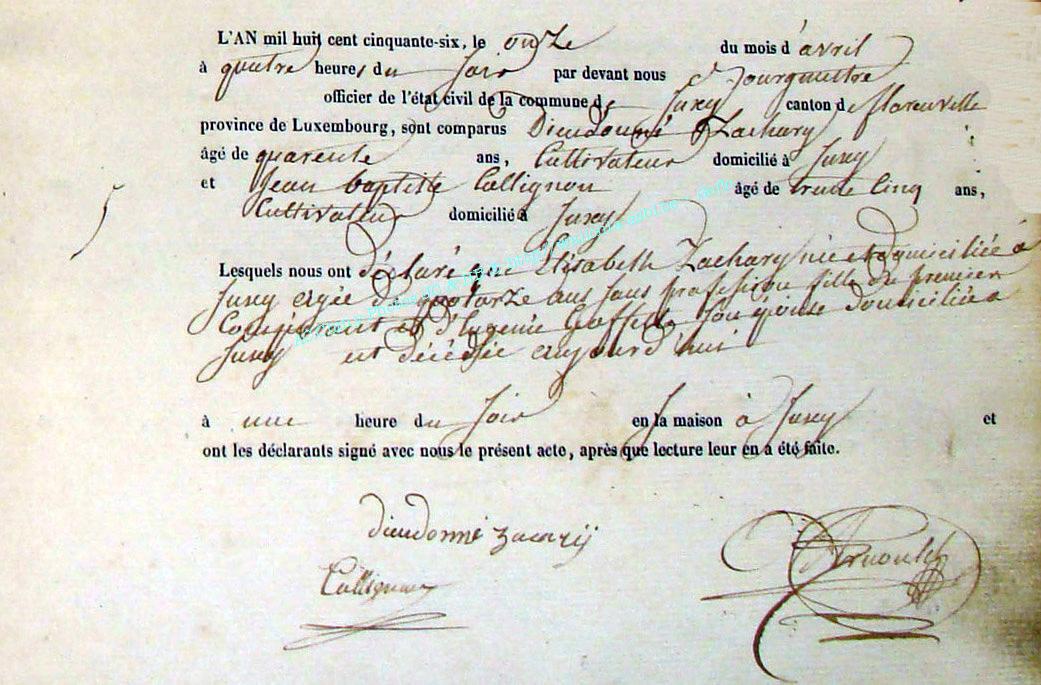 L'AN mil huit cent cinquante-six, le onze du mois d'avril
à quatre heures du soir par devant nous Bourgmestre
officier de l'état civil de la commune de Jusey canton de florenville
province de Luxembourg, sont comparus Dieudonné Zachary
âgé de quarente ans, Cultivateur domicilié à Jusey
et Jean baptiste Collignon âgé de trente Cinq ans,
Cultivateur domicilié à Jusey
5
Lesquels nous ont déclaré que Elisabeth Zachary née et domiciliée à
Jusey agée de quatorze ans sans profession fille du premier
Comparant et d'Eugenie son épouse domiciliée a
Jusey est décédée aujourd'hui
à une heure du soir en la maison à Jusey et
ont les déclarants signé avec nous le présent acte, après que lecture leur en a été faite.
dieudonné zacarij
Collignon
Arnould